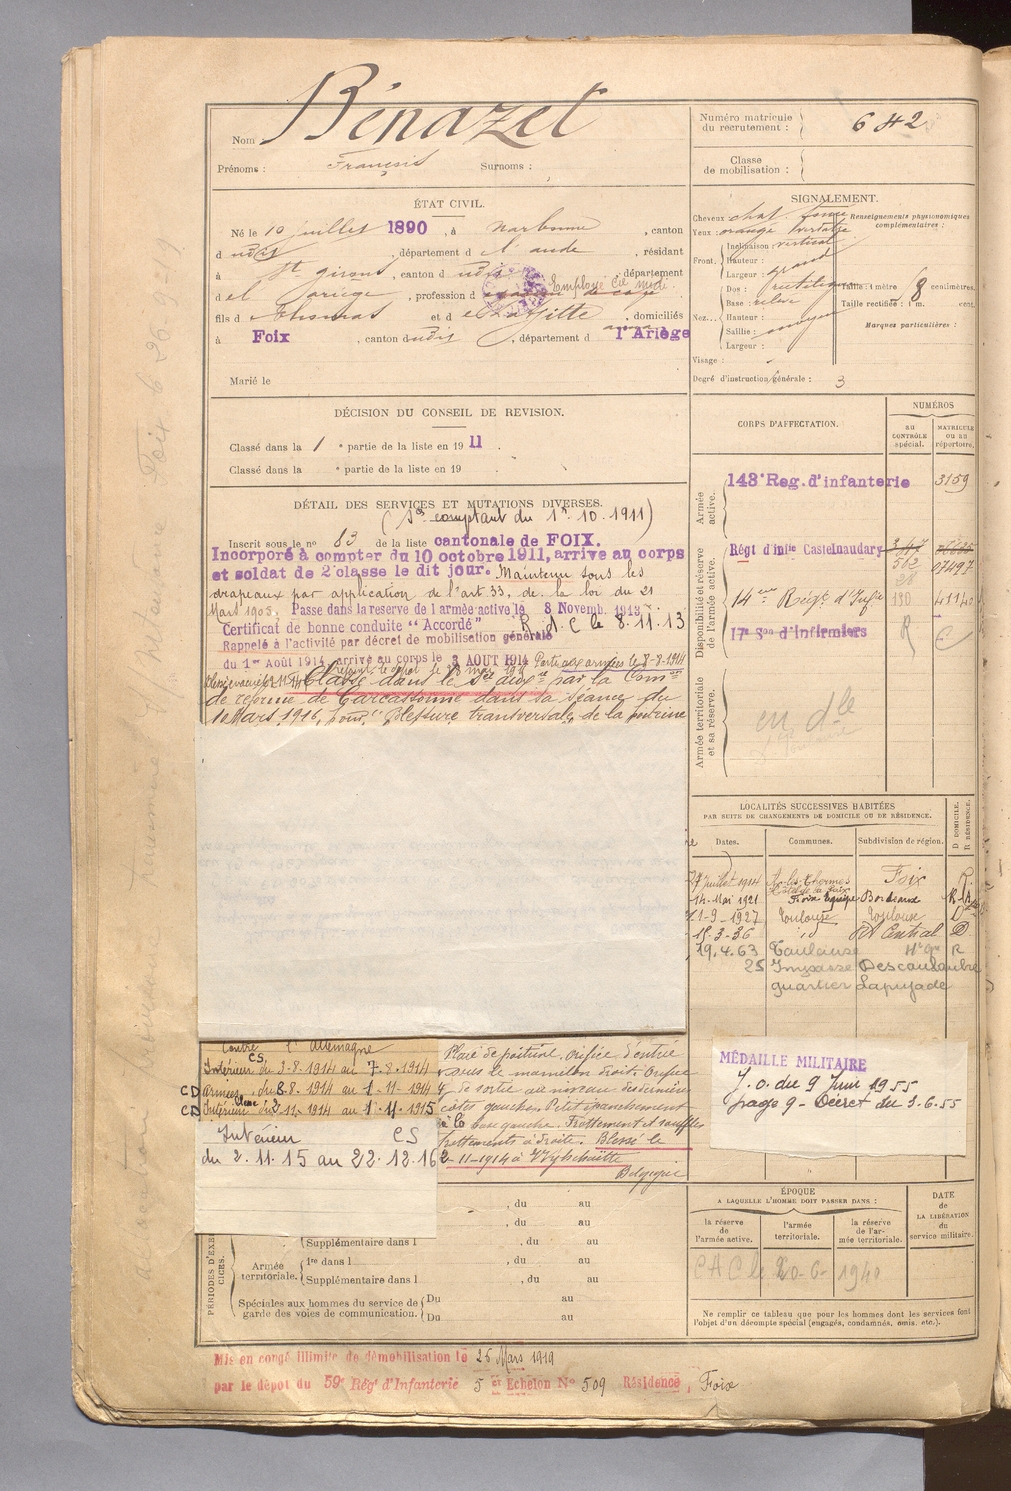 Nom : Bénazet
Prénoms : François Surnoms :
ÉTAT CIVIL.
Né le 10 juillet 1890, à Narbonne, canton
d udit, département d l'aude, résidant
à St girons, canton d udit, département
d el ariège, profession d Employé Cie midi
fils d Thomas et d domiciliés
à Foix, canton dudit, département d l'Ariège
Marié le
DÉCISION DU CONSEIL DE REVISION.
Classé dans la 1e partie de la liste en 1911.
Classé dans la e partie de la liste en 19
DÉTAIL DES SERVICES ET MUTATIONS DIVERSES.
(Sce comptant du 1er.10.1911)
Inscrit sous le no 83 de la liste cantonale de FOIX.
Incorporé à compter du 10 octobre 1911, arrive au corps
et soldat de 2e classe le dit jour. Maintenu sous les
drapeaux par application de l'art 33, de la loi du 21
Mars 1905, Passe dans la reserve de l'armée active le 8 Novemb. 1913
Certificat de bonne conduite "Accordé" R. d. C le 8.11.13
Rappelé à l'activité par décret de mobilisation générale
du 1er Août 1914, arrivé au corps le 3 AOUT 1914 Parti aux armées le 8-8-1914
Classé dans le Sce auxre par la Comon
de réforme de Carcassonne dans sa séance du
10 Mars 1916, pour "blessure transversale de la poitrine
Contre l'Allemagne
CS
Intérieur du 3-8-1914 au 7.8.1914
CD armées, du 8.8.1914 au 1-11-1914
CD Intérieur du 2-11-1914 au 1-11-1915
Intérieur CS
du 2.11.15 au 22.12.16
Plaie de poitrine. Orifice d'entrée
sous le mamelon droit. Orifice
de sortie au niveau des dernières
côtes gauches. Petit épanchement
à la base gauche. Frottement et souffles
frottements à droite. Blessé le
2-11-1914 à Wytschaëtte
Belgique
, du au
, du au
PÉRIODES D'EXERCICES.
Supplémentaire dans l , du au
Armée territoriale.
1re dans l , du au
Supplémentaire dans l , du au
Spéciales aux hommes du service de garde des voies de communication.
Du au
Du au
Mis en congé illimité de démobilisation le 25 Mars 1919
par le dépôt du 59e Régt d'Infanterie 5 er Echelon No 509 Résidence, Foix
Numéro matricule du recrutement : 642
Classe de mobilisation :
SIGNALEMENT.
Cheveux chat. foncé
Yeux : orangé
Front.
Inclinaison : vertical
Hauteur :
Largeur : grand
Nez...
Dos : rectiligne
Base : relevé
Hauteur :
Saillie : moyen
Largeur :
Visage :
Renseignements physionomiques complémentaires :
Taille : 1 mètre 8 centimètres.
Taille rectifiée : 1 m. cent.
Marques particulières :
Degré d'instruction générale : 3
CORPS D'AFFECTATION.
NUMÉROS
AU CONTRÔLE spécial.
MATRICULE OU AU répertoire.
Armée active.
143e Reg. d'infanterie 3159
Disponibilité et réserve de l'armée active.
Régt d'infie Castelnaudary 347
562 07497
28
14eme Régt d'Infie 130 41140
17e Son d'infirmiers R C
Armée territoriale et sa réserve.
en dle
LOCALITÉS SUCCESSIVES HABITÉES
PAR SUITE DE CHANGEMENTS DE DOMICILE OU DE RÉSIDENCE.
Dates. Communes. Subdivision de région. D DOMICILE. R RÉSIDENCE.
27 juillet 1914 Ax-les-Thermes Foix R.
14-Mai 1921 Bordeaux
21-9-1927 Toulouse Toulouse D
15-3-36 id RA Central D
19.4.63 Toulouse Hte Gne R
25 Impasse Descouloubre
quartier Lapujade
MÉDAILLE MILITAIRE
J.O. du 9 Juin 1955
page 9 - Décret du 3.6.55
ÉPOQUE
A LAQUELLE L'HOMME DOIT PASSER DANS :
la réserve de l'armée active.
l'armée territoriale.
la réserve de l'armée territoriale.
DATE de LA LIBÉRATION du service militaire.
CAC le 20-6-1940
Ne remplir ce tableau que pour les hommes dont les services font
l'objet d'un décompte spécial (engagés, condamnés, omis, etc.).